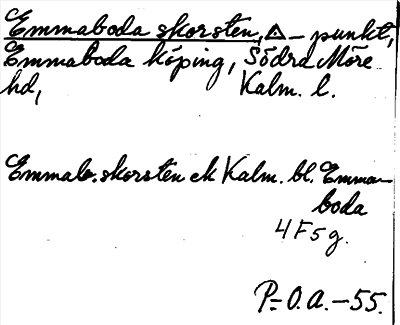 Emmaboda skorsten, △ - punkt,
Emmaboda köping, Södra Möre
hd, Kalm. l.
Emmab. skorsten ek Kalm. bl. Emma-
boda
4 F 5 g.
P.-O.A. - 55.